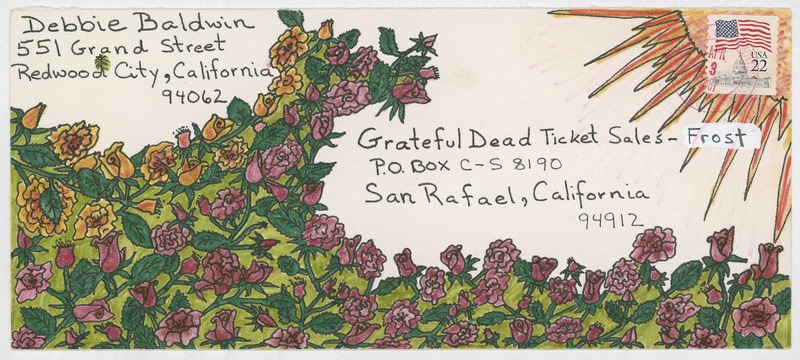 Debbie Baldwin
551 Grand Street
Redwood City, California
94062
USA
22
Grateful Dead Ticket Sales - Frost
P.O. Box C-S 8190
San Rafael, California
94912